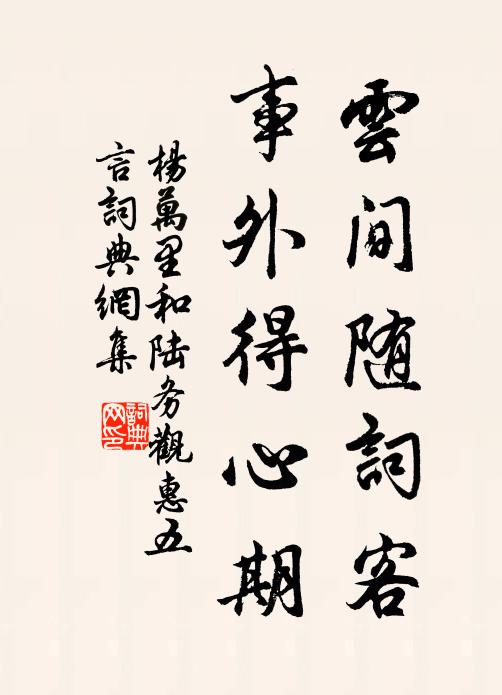 雲間随詞客
事外得心期
楊萬里和陆务觀惠五
言詞典網集
詞典
网印